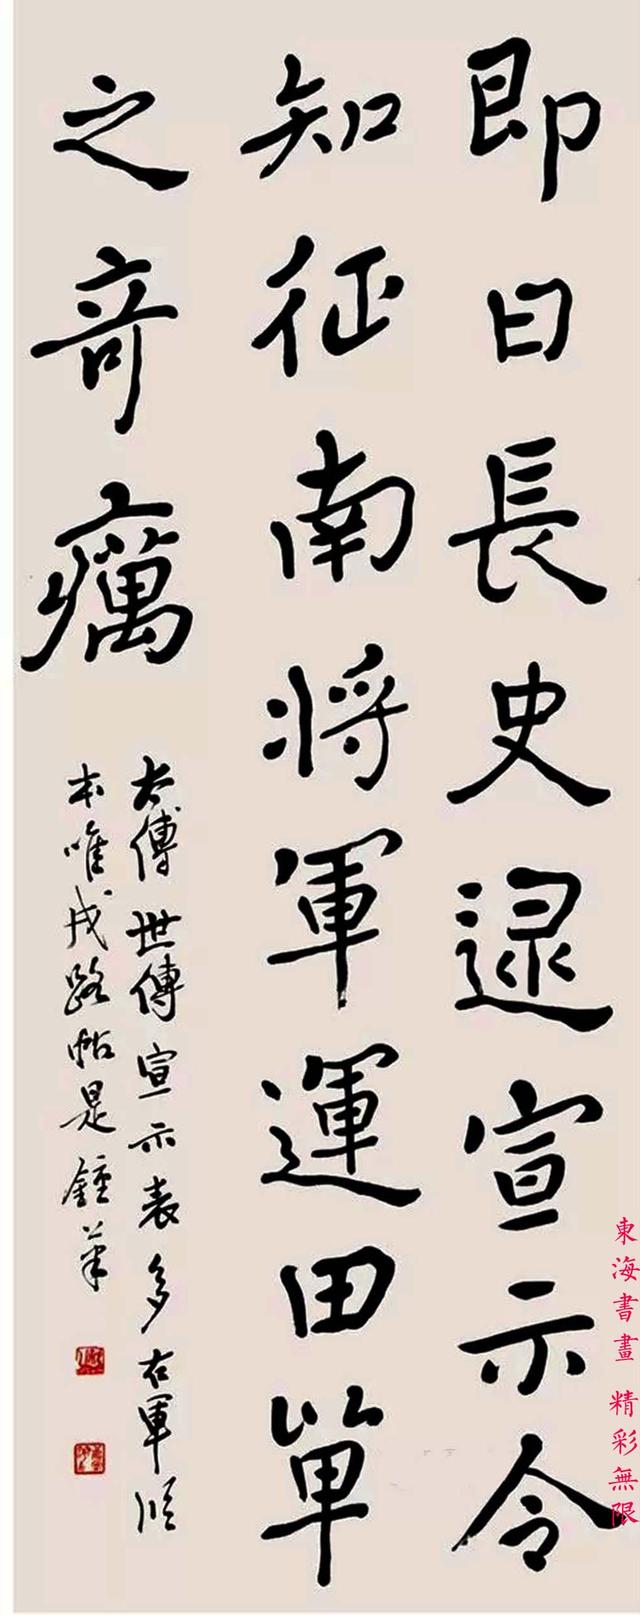 即日長史逯宣示令
知征南将軍運田單
之奇癘
太傅世傳宣示表多右軍臨
本唯戎路帖是鍾筆
東海書畫 精彩無限